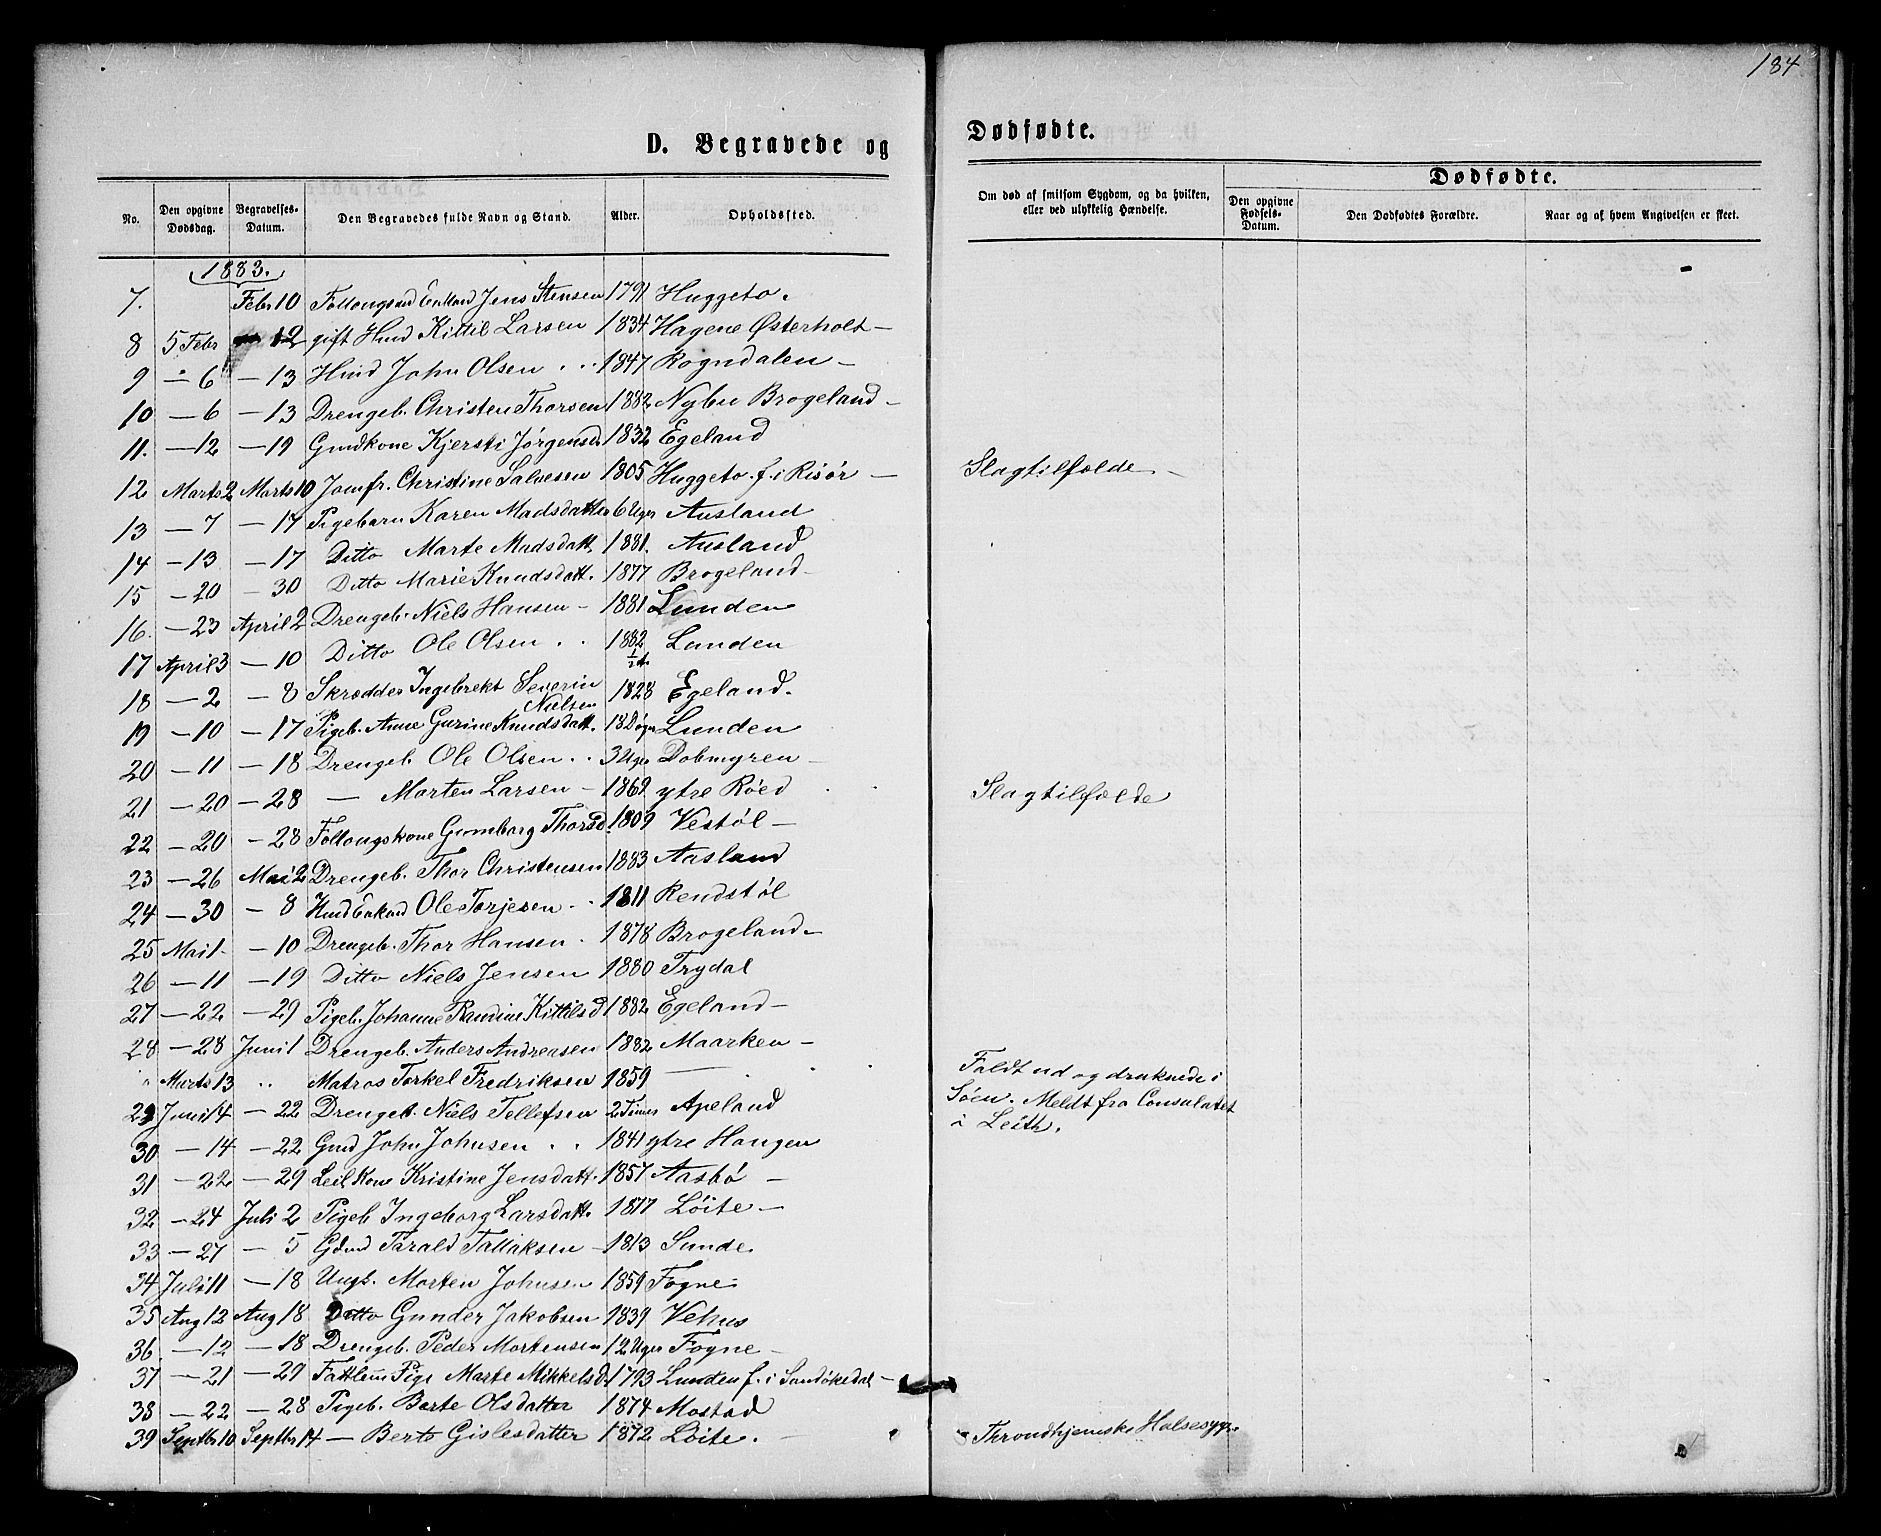 184
D. Begravede og Dødfødte.
No. Den opgivne Dødsdag. Begravelses-Datum. Den Begravedes fulde Navn og Stand. Alder. Opholdssted. Om død af smitsom Sygdom, og da hvilken, eller ved ulykkelig Hændelse. Dødfødte. Den opgivne Fødsels-Datum. Den Dødfødtes Forældre. Naar og af hvem Angivelsen er skeet.
1883.
7. Febr 10 Jens Stensen 1791 Huggeto.
8 5 Febr 12 gift Hmd Kittil Larsen 1834 Hagene Østerholt —
9 — 6 — 13 Hmd John Olsen . . 1847 Rogndalen —
10 — 6 — 13 Drengeb. Christen Thorsen 1882 Nybu Brogeland —
11. — 12 — 19 Gmdkone Kjersti Jørgensd 1832 Egeland
12 Marts 2 Marts 10 Jomfr. Christine Salvesen 1805 Huggeto. f. i Risör — Slagtilfælde —
13 — 7 — 17 Pigebarn Karen Madsdatter 6 Uger Ausland
14 — 13 — 17 Ditto Marte Madsdatt. 1881. Ausland
15 — 20 — 30 Ditto Marie Knudsdatt. 1877 Brogeland —
16. — 23 April 2 Drengeb. Niels Hansen — 1881 Lunden
17 April 3 — 10 Ditto Ole Olsen . . 1882 Lunden
18 — 2 — 8 Skrædder Ingebrekt Severin Nielsen 1828 Egeland.
19 — 10 — 17 Pigeb. Anne Gurine Knudsdatt. 18 Døgn Lunden
20 — 11 — 18 Drengeb. Ole Olsen . . 3 Uger Dobmyren —
21 — 20 — 28 — Morten Larsen — 1869 ytre Röed Slagtilfælde
22 — 20 — 28 Follaugskone Gunborg Thorsd. 1809 Vestöl —
23 — 26 Mai 2 Drengeb. Thor Christensen 1883 Aasland
24 — 30 — 8 Ole Torjesen . . 1811 Rendstöl
25 Mai 1 — 10 Drengeb. Thor Hansen . 1878 Brogeland —
26 — 11 — 19 Ditto Niels Jensen 1880 Trydal
27 — 22 — 29 Pigeb. Johanne Randine Kittilsd 1882 Egeland —
28 — 28 Juni 1 Drengeb. Anders Andreasen 1882 Maarken —
" Marts 13 " Matros Torkel Fredriksen 1859 — Faldt ud og druknede i
29 Juni 4 — 22 Drengeb. Niels Tellefsen 2 Timer Apeland Söen. Meldt fra Consulatet
30 — 14 — 22 Gmd John Johnsen . . 1841 ytre Haugen i Leith.
31 — 22 — 29 Leilkone Kristine Jensdatt. 1857 Aasbö —
32 — 24 Juli 2 Pigeb Ingeborg Larsdatt. 1877 Löite —
33 — 27 — 5 Gdmd Tarald Tallaksen — 1813 Sunde.
34 Juli 11 — 18 Ungk. Morten Johnsen 1859 Fogne.
35 Aug 12 Aug 18 Ditto Gunder Jakobsen 1839 Vehus
36. — 12 — 18 Drengeb. Peder Mortensen 12 Uger Fogne —
37 — 21 — 29 Fattlem Pige Marte Mikkelsd. 1793 Lunden f. i Sandökedal —
38 — 22 — 28 Pigeb. Berte Olsdatter 1874 Mostad
39 Septbr 10 Septbr 14 — Berte Gislesdatter 1872 Löite. — Throndhjemske Halsesyge